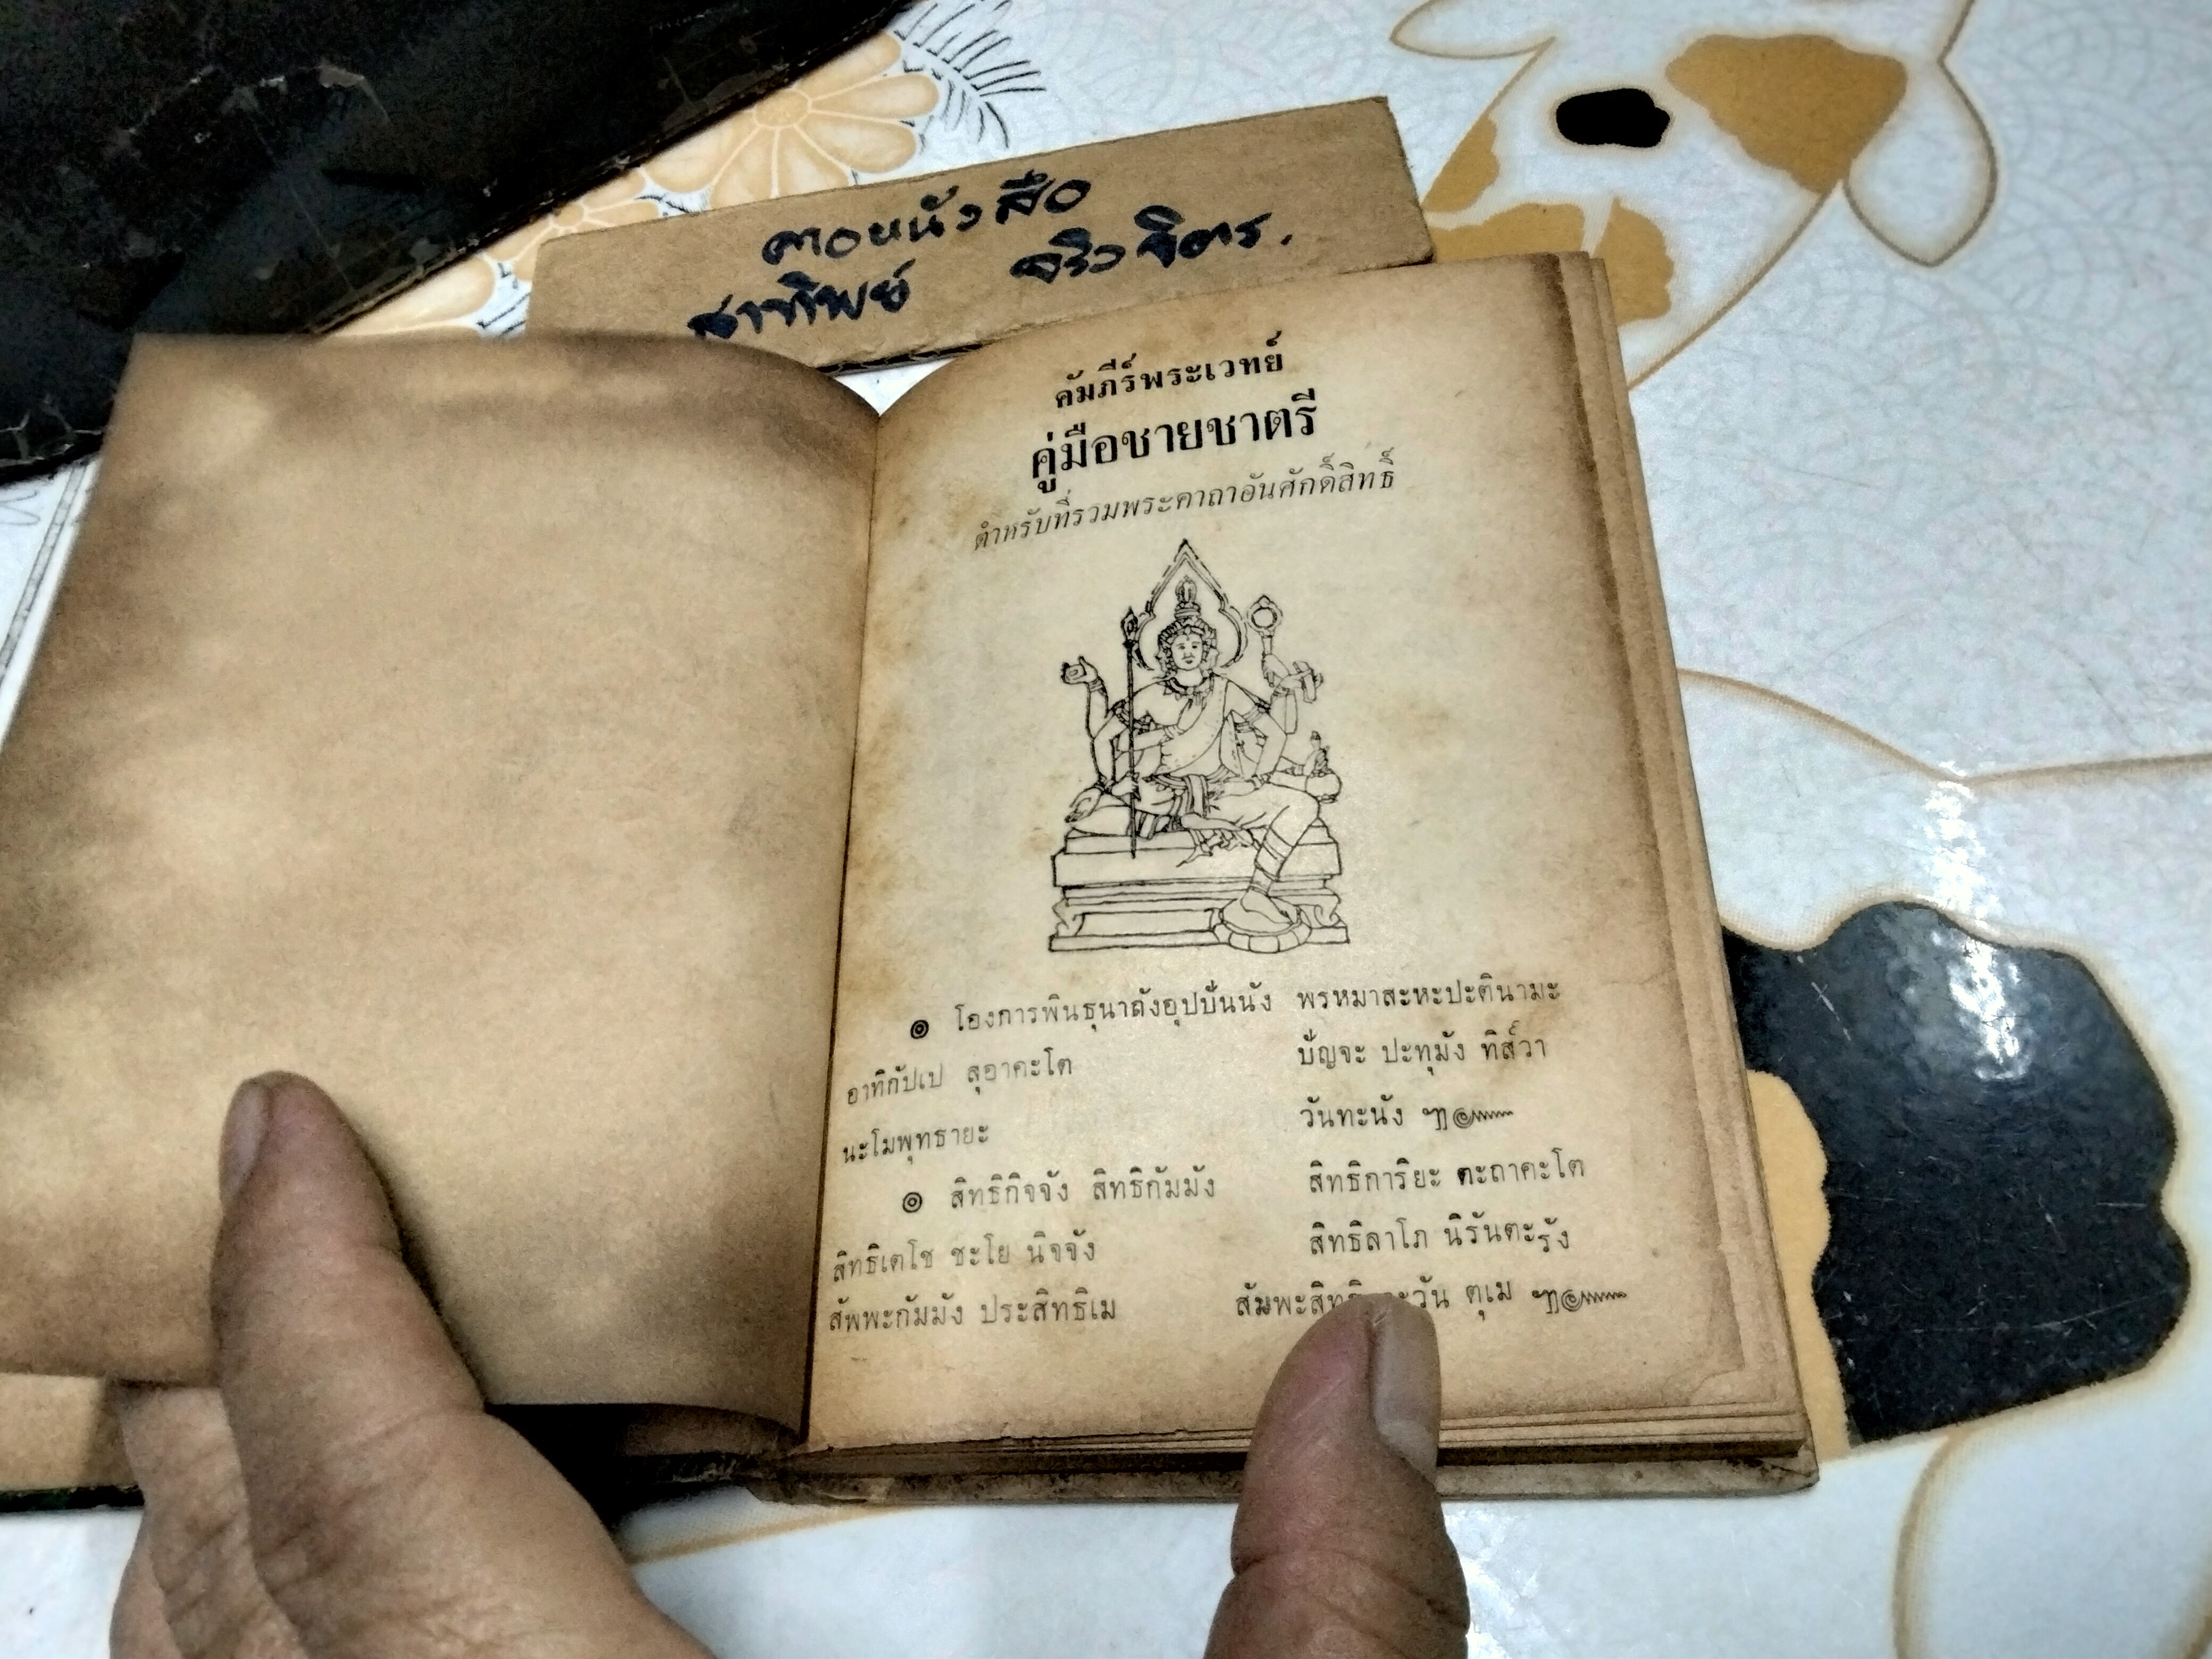 หนังสือ
ทิพย์ จริงจิตร.
คัมภีร์พระเวทย์
คู่มือชายชาตรี
ตำหรับที่รวมพระคาถาอันศักดิ์สิทธิ์
๏ โองการพินธุนาถังอุปปันนัง พรหมาสะหะปะตินามะ
อาทิกัปเป สุอาคะโต ปัญจะ ปะทุมัง ทิส์วา
นะโมพุทธายะ วันทะนัง ๚๛
๏ สิทธิกิจจัง สิทธิกัมมัง สิทธิการิยะ ตะถาคะโต
สิทธิเตโช ชะโย นิจจัง สิทธิลาโภ นิรันตะรัง
สัพพะกัมมัง ประสิทธิเม สัมพะสิทธิ วัน ตุเม ๚๛